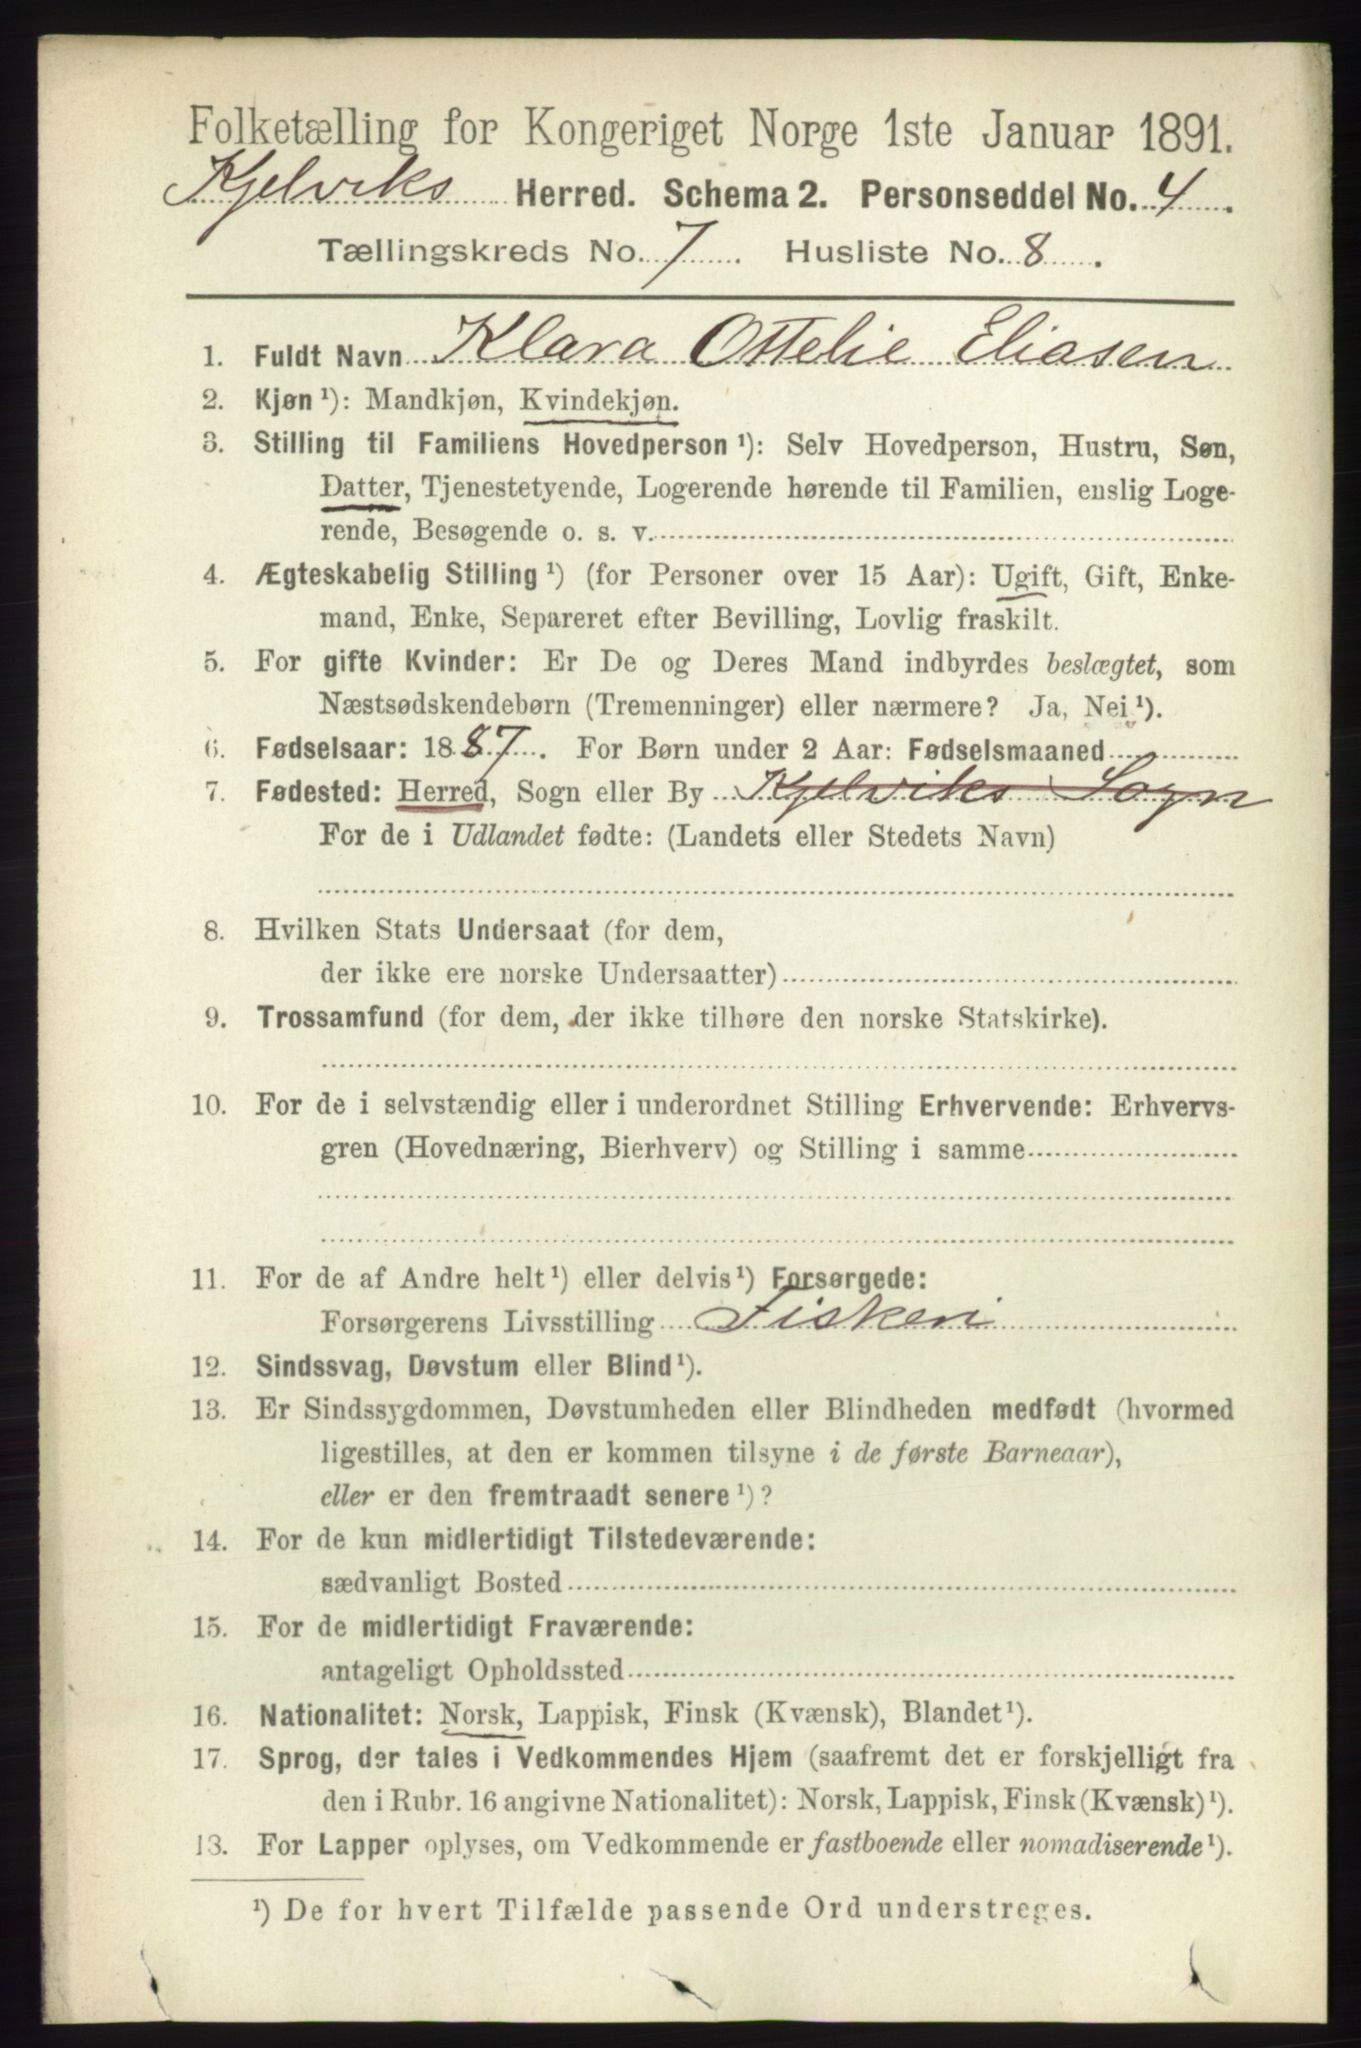 Folketælling for Kongeriget Norge 1ste Januar 1891.
Kjelviks Herred. Schema 2. Personseddel No. 4.
Tællingskreds No. 7. Husliste No. 8.
1. Fuldt Navn Klara Ottelie Eliasen
2. Kjøn ¹): Mandkjøn, Kvindekjøn.
3. Stilling til Familiens Hovedperson ¹): Selv Hovedperson, Hustru, Søn,
Datter, Tjenestetyende, Logerende hørende til Familien, enslig Loge-
rende, Besøgende o. s. v.
4. Ægteskabelig Stilling ¹) (for Personer over 15 Aar): Ugift, Gift, Enke-
mand, Enke, Separeret efter Bevilling, Lovlig fraskilt.
5. For gifte Kvinder: Er De og Deres Mand indbyrdes beslægtet, som
Næstsødskendebørn (Tremenninger) eller nærmere? Ja, Nei ¹).
6. Fødselsaar: 1887. For Børn under 2 Aar: Fødselsmaaned
7. Fødested: Herred, Sogn eller By Kjelviks Sogn
For de i Udlandet fødte: (Landets eller Stedets Navn)
8. Hvilken Stats Undersaat (for dem,
der ikke ere norske Undersaatter)
9. Trossamfund (for dem, der ikke tilhøre den norske Statskirke).
10. For de i selvstændig eller i underordnet Stilling Erhvervende: Erhvervs-
gren (Hovednæring, Bierhverv) og Stilling i samme
11. For de af Andre helt ¹) eller delvis ¹) Forsørgede:
Forsørgerens Livsstilling Fiskeri
12. Sindssvag, Døvstum eller Blind ¹).
13. Er Sindssygdommen, Døvstumheden eller Blindheden medfødt (hvormed
ligestilles, at den er kommen tilsyne i de første Barneaar),
eller er den fremtraadt senere ¹)?
14. For de kun midlertidigt Tilstedeværende:
sædvanligt Bosted
15. For de midlertidigt Fraværende:
antageligt Opholdssted
16. Nationalitet: Norsk, Lappisk, Finsk (Kvænsk), Blandet ¹).
17. Sprog, der tales i Vedkommendes Hjem (saafremt det er forskjelligt fra
den i Rubr. 16 angivne Nationalitet): Norsk, Lappisk, Finsk (Kvænsk) ¹).
13. For Lapper oplyses, om Vedkommende er fastboende eller nomadiserende ¹).
¹) De for hvert Tilfælde passende Ord understreges.